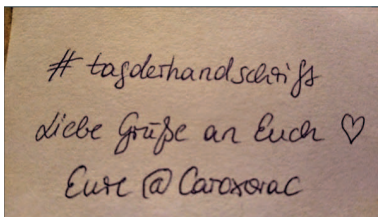 #tagderhandschrift
Liebe Grüße an Euch ♡
Eure @Caroxorac